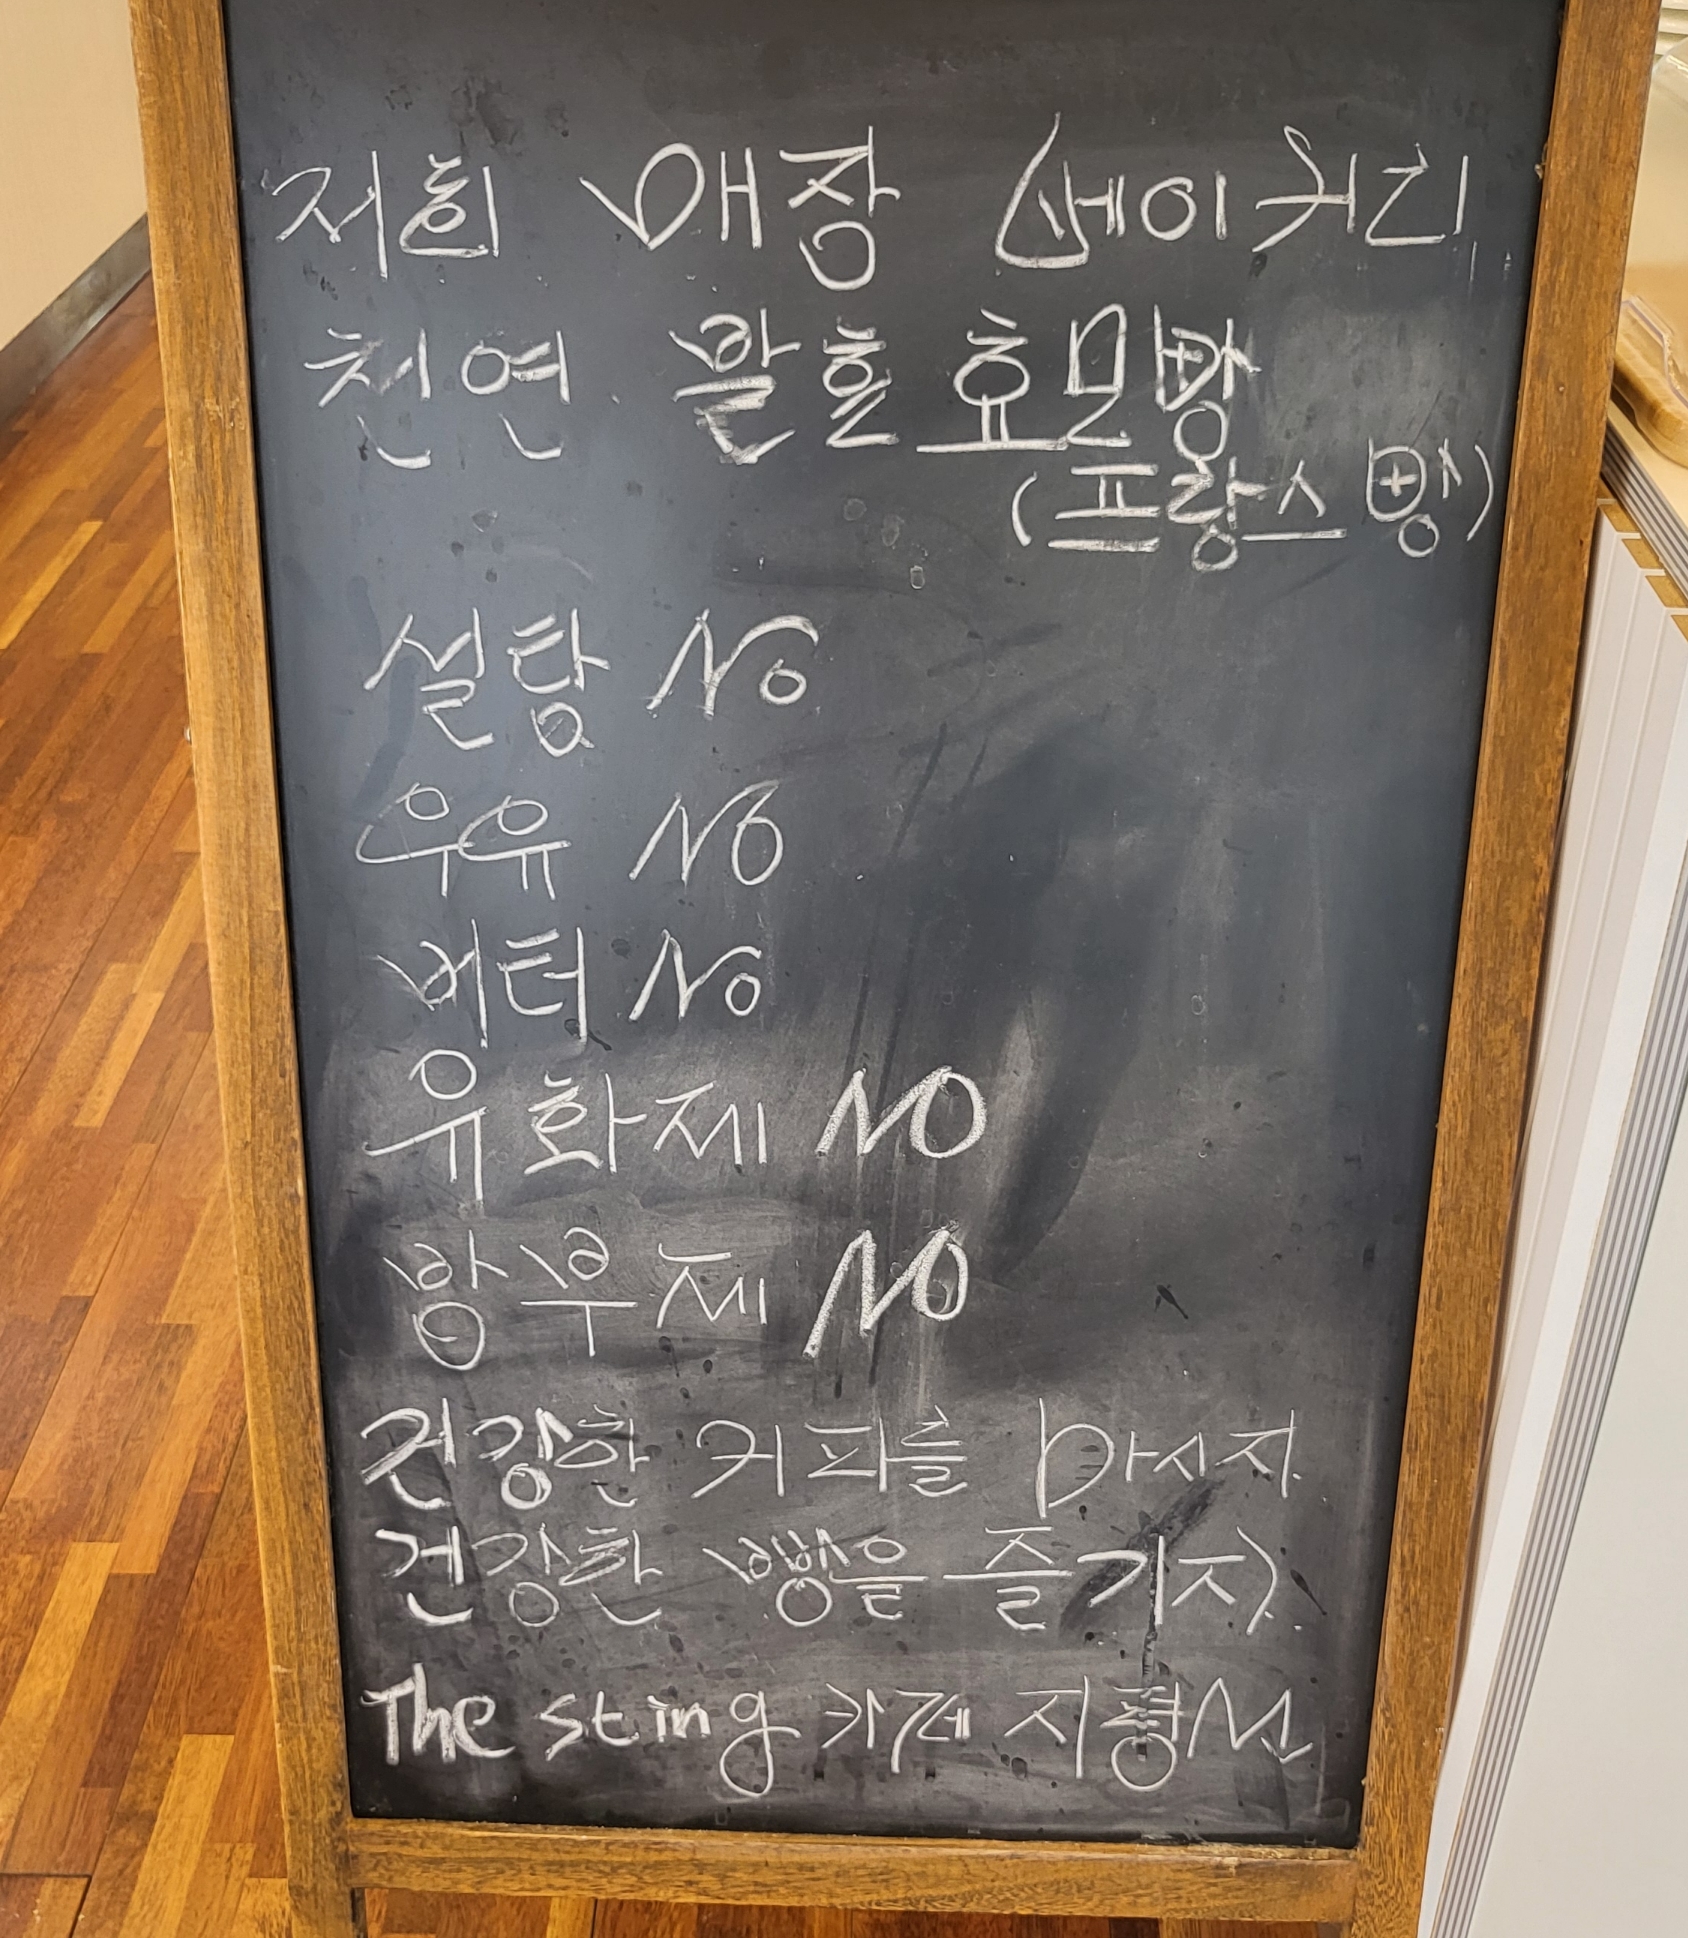 저희 매장 베이커리
천연 발효 효모빵
(프랑스빵)
설탕 No
우유 No
버터 No
유화제 NO
방부제 NO
건강한 커피를 마시자.
건강한 빵을 즐기자.
The sting 카페 지평선